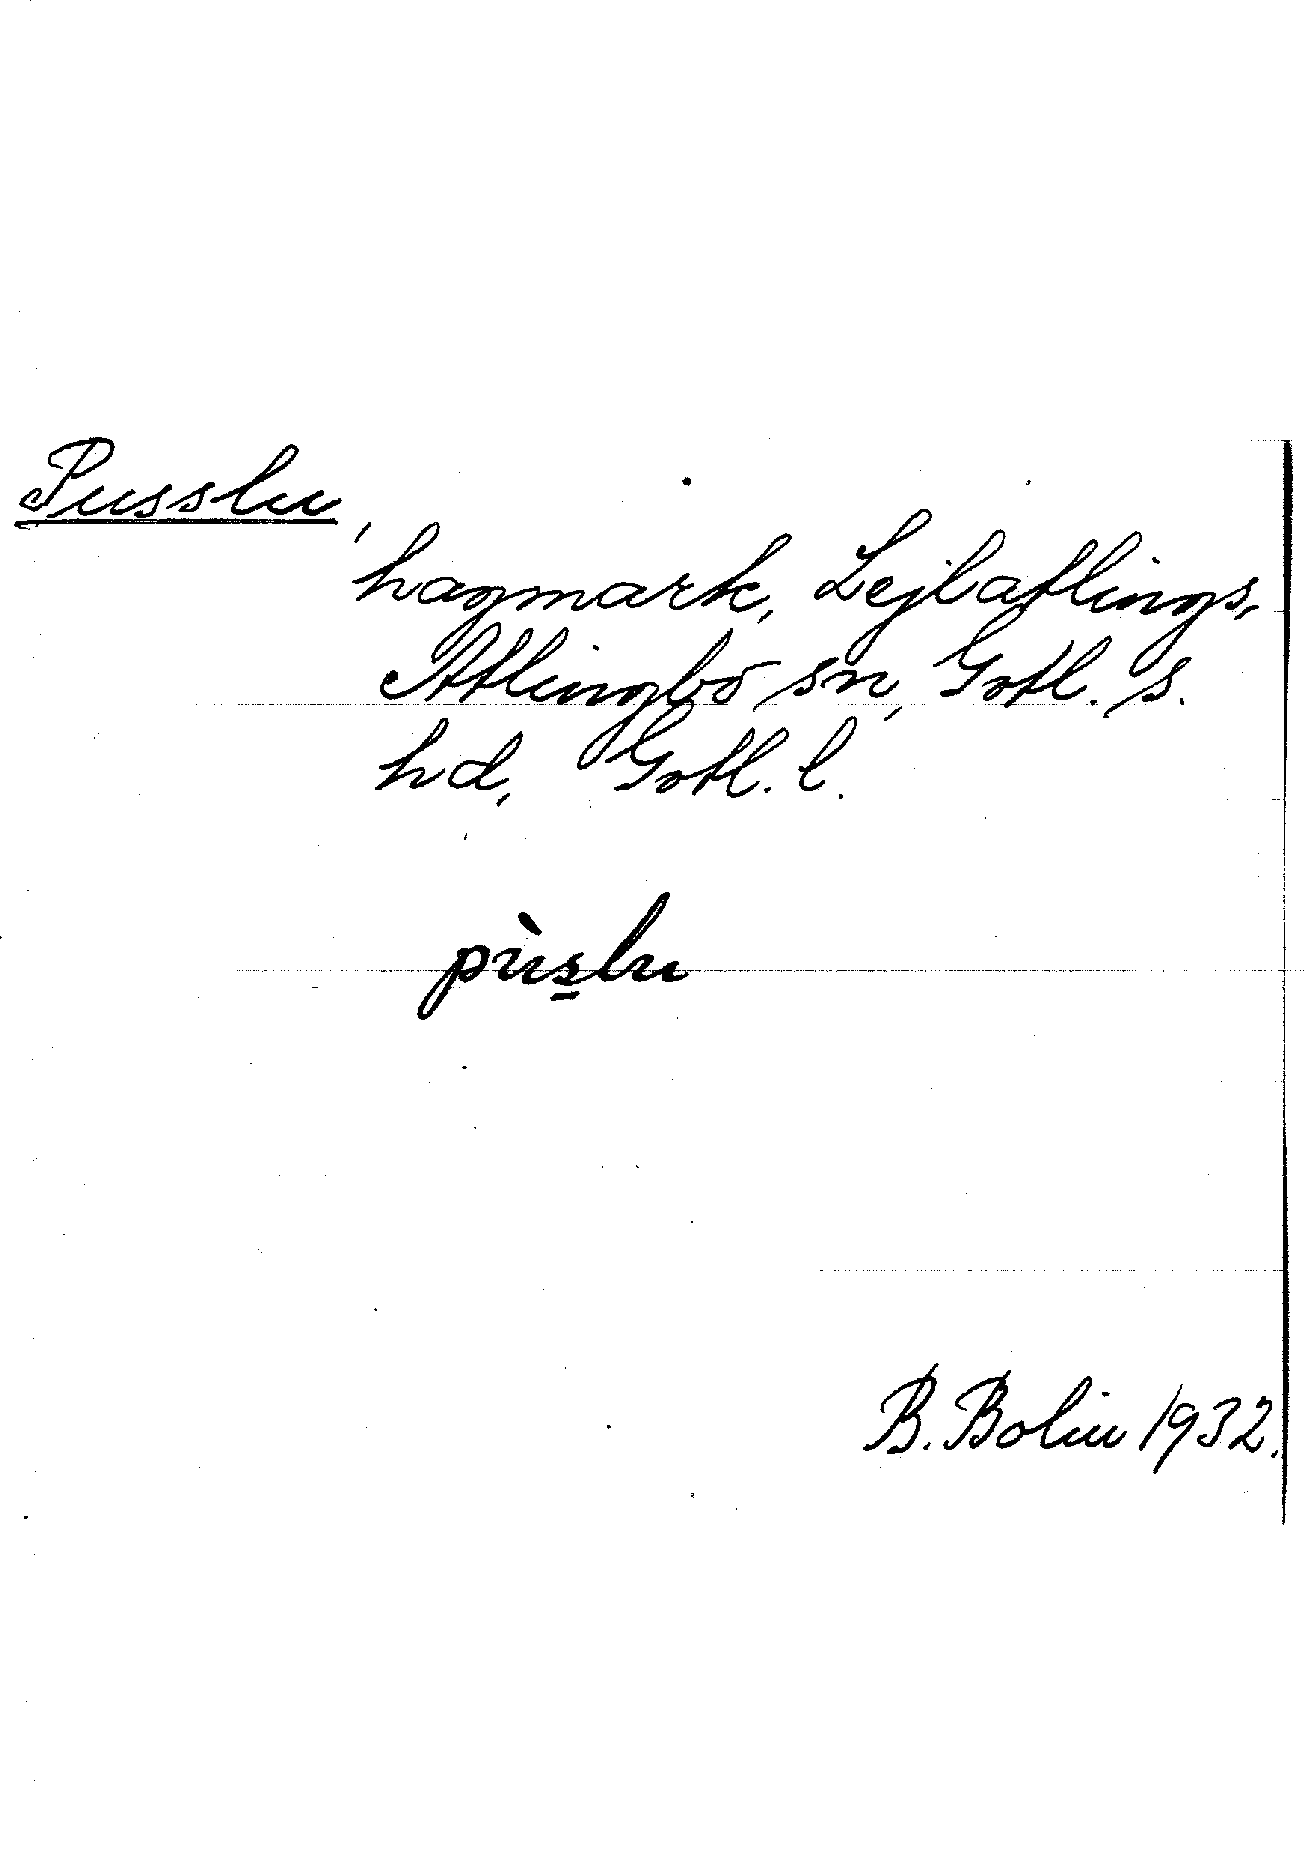 Pusslu,
hagmark, Lejlatlings,
Atlingbo sn, Gotl. s.
hd, Gotl. l.
pùs̱lu
B. Bolin 1932.